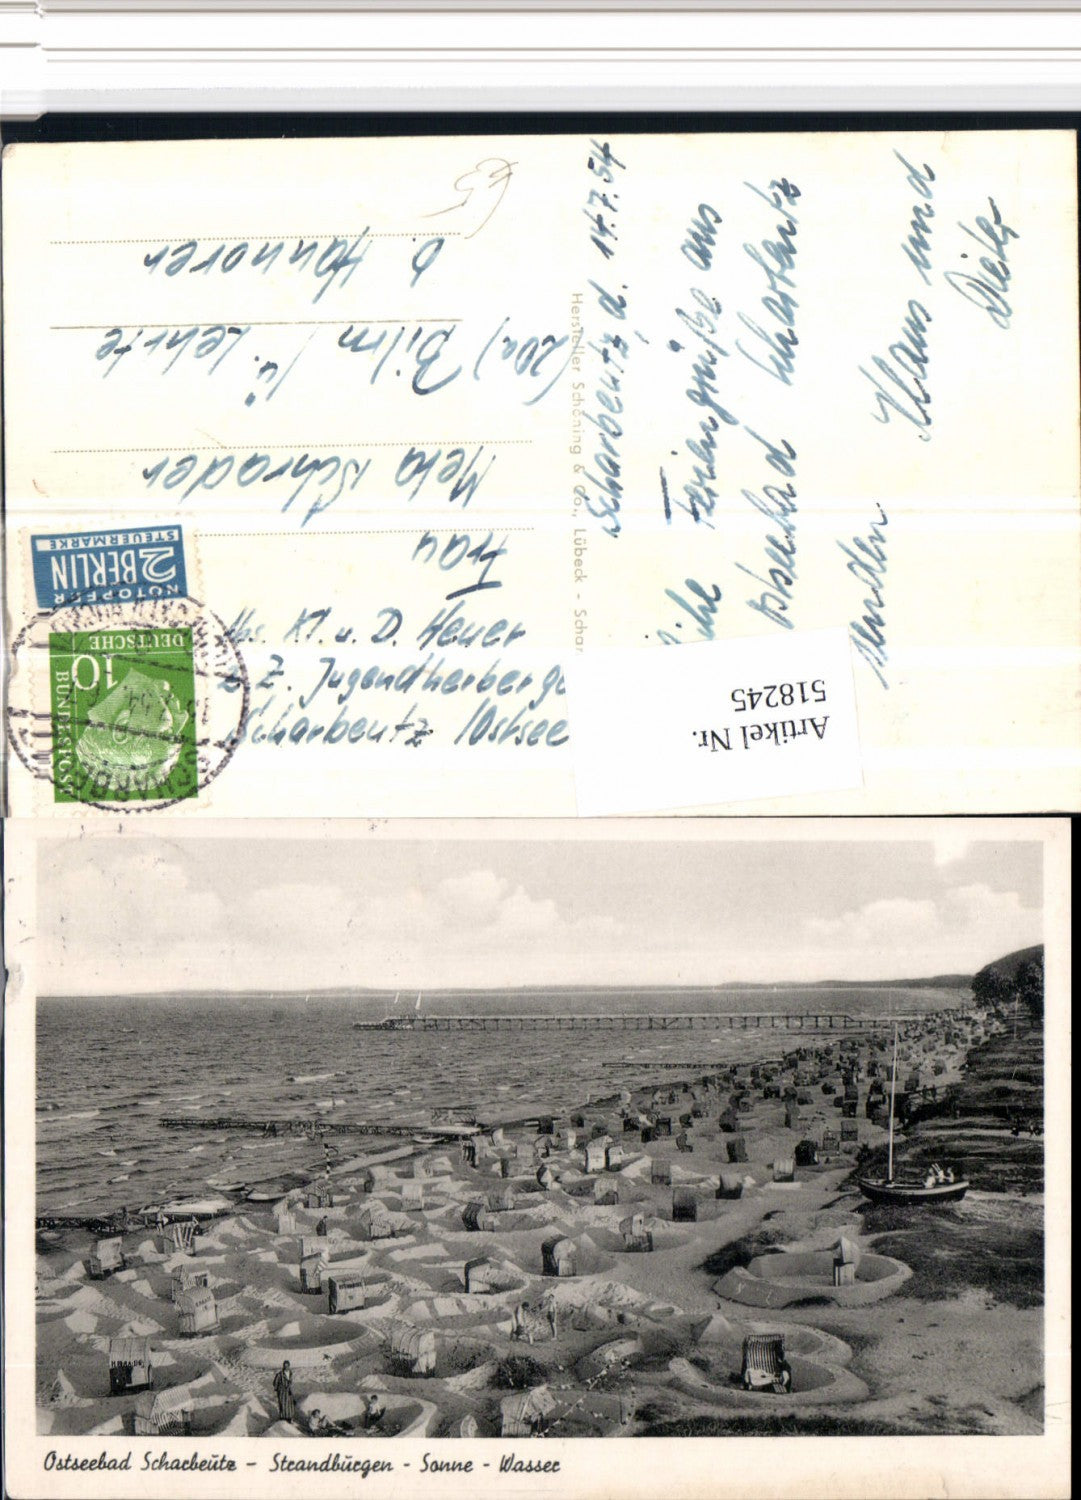 Scharbeutz, d. 14.7.54
Feriengrüße aus
Ostseebad Scharbeutz
senden
Klaus und
Dieter
Hersteller Schöning & Co., Lübeck - Schar
Frau
Meta Schrader
(20a) Bilm / ü. Lehrte
b. Hannover
Abs. Kl. u. D. Heuer
z. Z. Jugendherberge
Scharbeutz /Ostsee
NOTOPFER
2 BERLIN
STEUERMARKE
DEUTSCHE
BUNDESPOST
10
Artikel Nr.
518245
Ostseebad Scharbeutz - Strandburgen - Sonne - Wasser